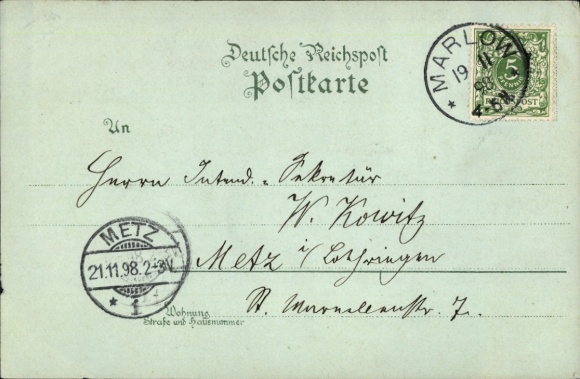 Deutsche Reichspost
Postkarte
MARLOW
19 11
98
4-5N
5
An
Herrn Intend.-Sekretär
W. Kowitz
Metz i/Lothringen
St. Marcellenstr. 7.
METZ
21.11.98. 2-3V.
* 1
Wohnung
Straße und Hausnummer